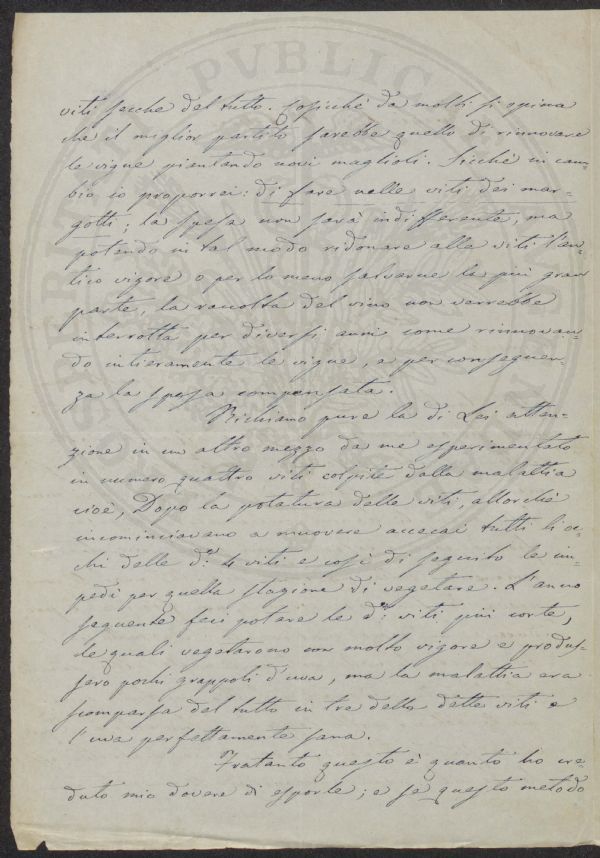 viti secche del tutto. Sosicchè da molti si opina
che il miglior partito sarebbe quello di rinnovare
le vigne piantando novi maglioli. Sicchè in cam=
bio io proporrei: di fare nelle viti dei mar=
gotti; la spesa non sarà indifferente, ma
potendo in tal modo ridonare alle viti l'an=
tico vigore o per lo meno salvarne la più gran
parte, la raccolta del vino non verrebbe
interrotta per diversi anni come rinnovan=
do intieramente le vigne, e per conseguen=
za la spesa compensata.
Richiamo pure la di Lei atten=
zione in un altro mezzo da me esperimentato
in numero quattro viti colpite dalla malattia
cioè, Dopo la potatura delle viti, allorchè
incominciavano a muovere accecai tutti li oc=
chi delle d.e 4 viti e così di seguito le im=
pedi per quella stagione di vegetare. L'anno
seguente feci potare le d.e viti più corte,
le quali vegetarono con molto vigore e produs=
sero pochi grappoli d'uva, ma la malattia era
scomparsa del tutto in tre delle dette viti e
l'uva perfettamente sana.
Fratanto questo è quanto ho cre=
duto mio dovere di esporle; e se questo metodo
PVBLIC